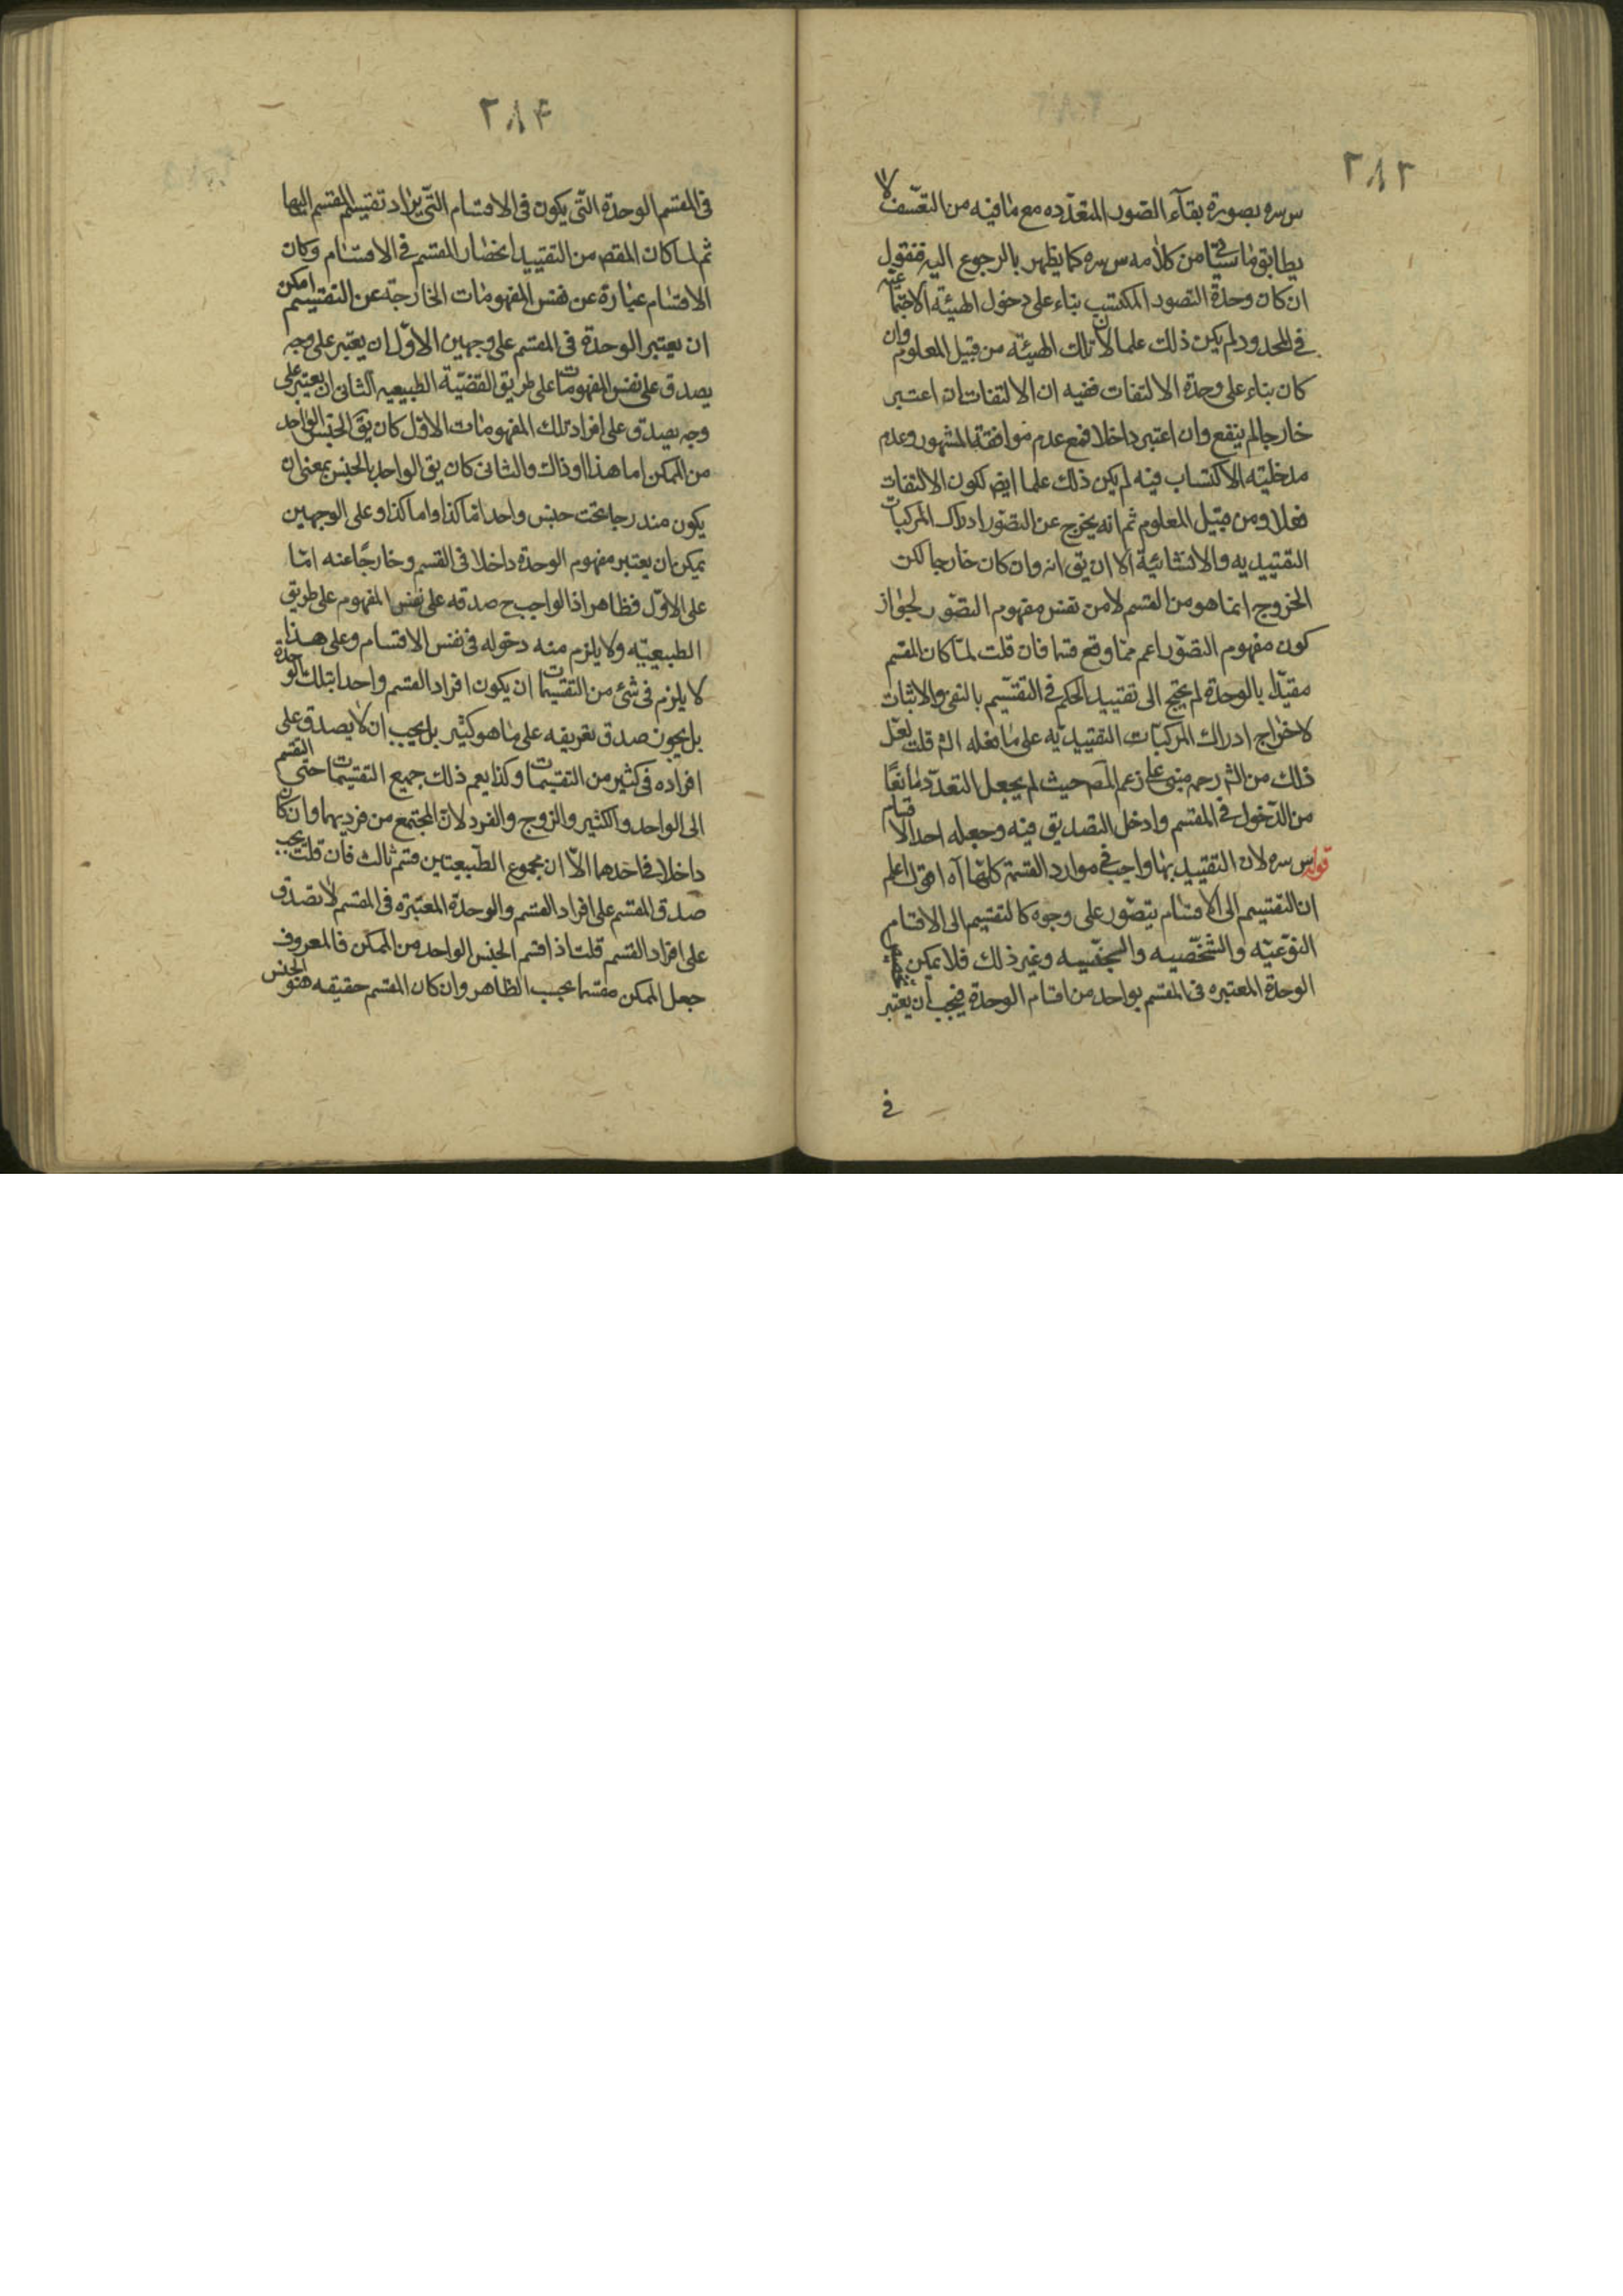 ٢٨٣
س سره بصورة بقآء الصّور المتعدّده مع ما فيه من التعسّف لا
يطابق ما سيأتى من كلامه س سره كما يظهر بالرجوع اليه فنقول
ان كان وحدة التصور المكتسب بناء على دخول الهيئة الاجتماعيّة
فى المحدود لم يكن ذلك علما لان تلك الهيئة من قبيل المعلوم وان
كان بناء على وحدة الالتفات ففيه ان الالتفات ان اعتبر
خارجا لم ينفع وان اعتبر داخلا فمع عدم موافقة المشهور وعدم
مدخليّة الاكتساب فيه لم يكن ذلك علما ايض لكون الالتفات
فعلا ومن قبيل المعلوم ثم انه يخرج عن التصّور ادراك المركبات
التقييديه والانشائية الا ان يق انه وان كان خارجا لكن
الخروج انما هو من القسم لا من نفس مفهوم التصّور لجواز
كون مفهوم التصّور اعم ممّا وقع قسما فان قلت لمّا كان المقسم
مقيّدا بالوحدة لم يحتج الى تقييد الحكم فى التقسيم بالنفى والاثبات
لاخراج ادراك المركبّات التقييديّه على ما فعله الش قلت لعّل
ذلك من الش رحمه مبنى على زعم المص حيث لم يجعل التعدّد مانعًا
من الدّخول فى المقسم وادخل التصديق فيه وجعله احد الاقسام
قوله س سره لان التقييد بها واجب فى موارد القسمة كلّها آه اقول اعلم
ان التقسيم الى الاقسام يتصّور على وجوه كالتقسيم الى الاقسام
النوّعيّه والشّخصّيه والصنّفيه وغير ذلك فلا يمكن
الوحدة المعتبره فى المقسم بواحد من اقسام الوحدة فيجب ان يعتبر
فى
٢٨۴
فى المقسم الوحدة التّى يكون فى الاقسام التّى يراد تقسيم المقسم اليها
ثم لما كان المقص من التقييد انحصار المقسم فى الاقسام وكان
الاقسام عبارة عن نفس المفهومات الخارجة عن التقسيم امكن
ان يعتبر الوحدة فى المقسم على وجهين الاوّل ان يعتبر على وجه
يصدق على نفس المفهومات على طريق القضيّة الطبيعيه الثانى ان يعتبر على
وجه يصدق على افراد تلك المفهومات الاوّل كان يق الجنس الواحد
من الممكن اما هذا او ذاك والثانى كان يق الواحد بالجنس بمعنى ان
يكون مندرجا تحت جنس واحد امّا كذا واما كذا وعلى الوجهين
يمكن ان يعتبر مفهوم الوحدة داخلا فى القسم وخارجًا عنه امّا
على الاوّل فظاهر اذ الواجب ح صدقه على نفس المفهوم على طريق
الطبيعيّه ولا يلزم منه دخوله فى نفس الاقسام وعلى هذا
لا يلزم فى شئ من التقسيمات ان يكون افراد القسم واحدا بتلك الوحدة
بل يجوز صدق تعريفه على ما هو كثير بل يجب ان لا يصدق على
افراده فى كثير من التقسيمات وكذا يعم ذلك جميع التقسيمات حتى القسم
الى الواحد والكثير والزوج والفرد لان المجتمع من فرديهما وان كان
داخلا فى احدهما الاّ ان مجموع الطّبيعتين قسم ثالث فان قلت يجب
صدق المقسم على افراد القسم والوحدة المعتبره فى المقسم لا تصدق
على افراد القسم قلت اذا قسم الجنس الواحد من الممكن فالمعروف
جعل الممكن مقسما بحسب الظاهر وان كان المقسم حقيقه هو الجنس